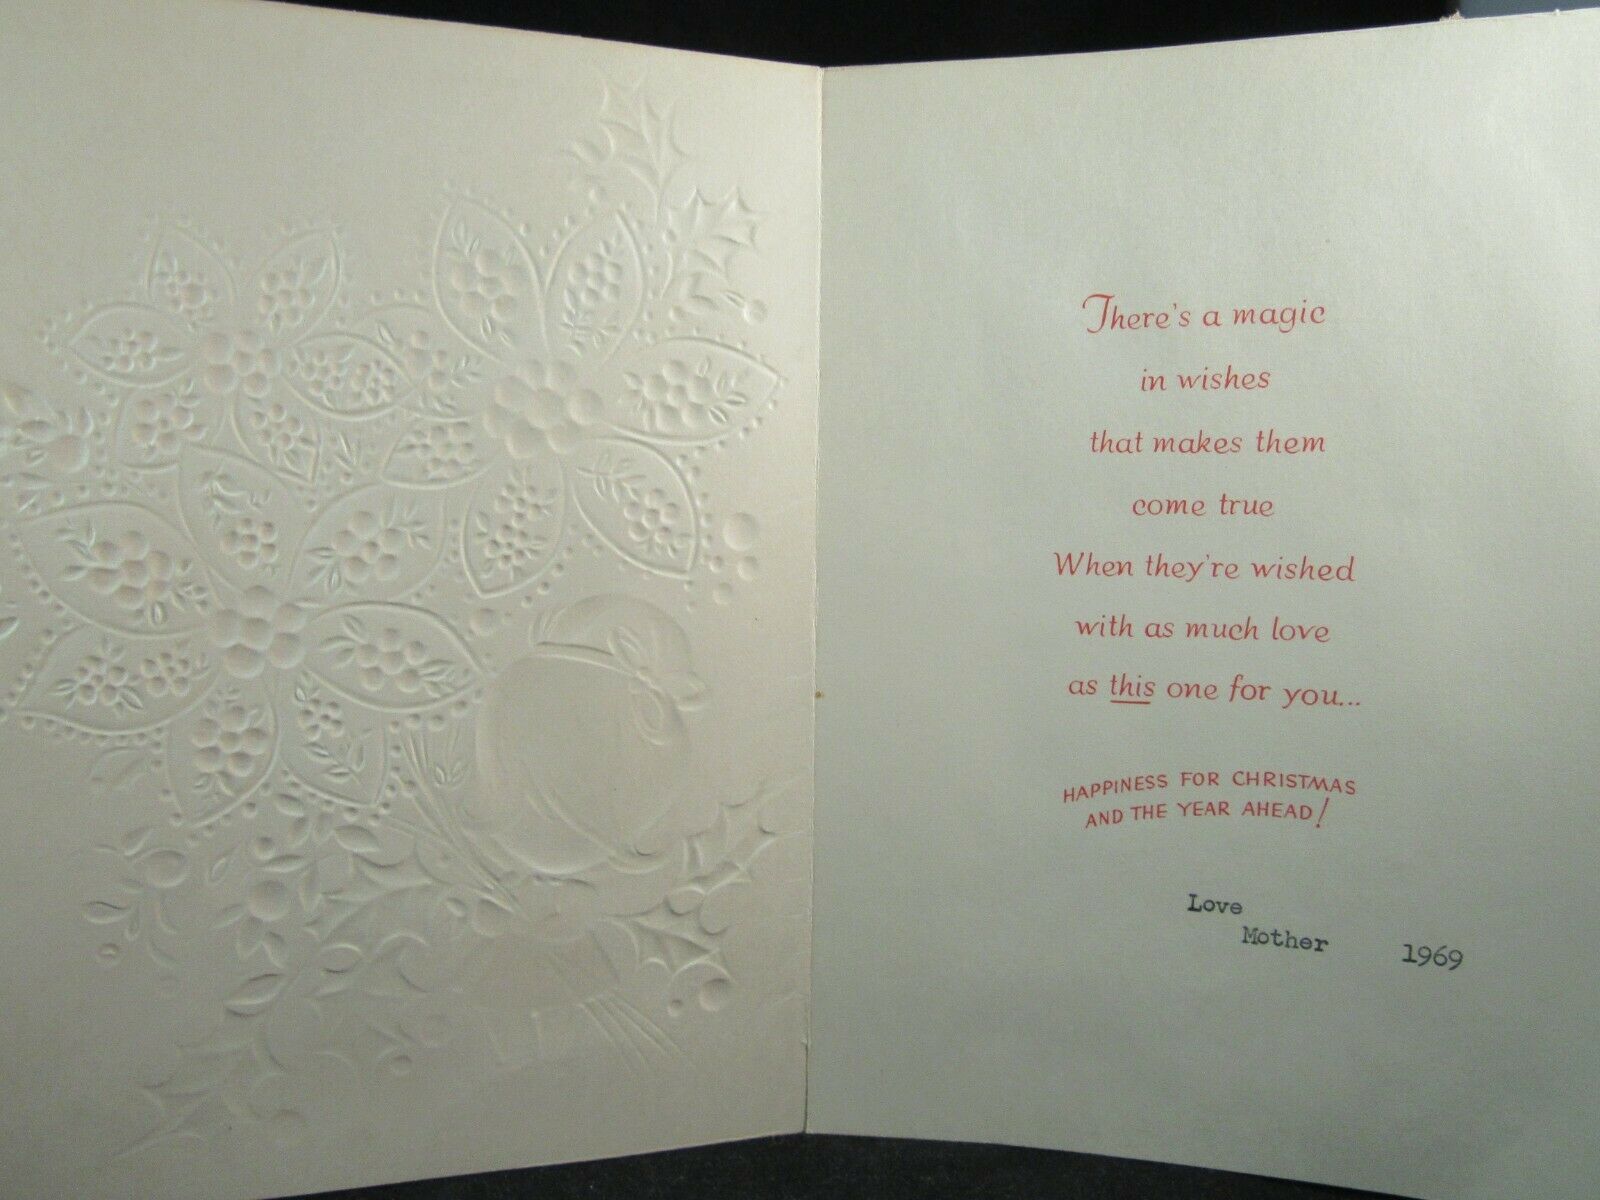 There's a magic
in wishes
that makes them
come true
When they're wished
with as much love
as this one for you...
HAPPINESS FOR CHRISTMAS
AND THE YEAR AHEAD!
Love
Mother 1969